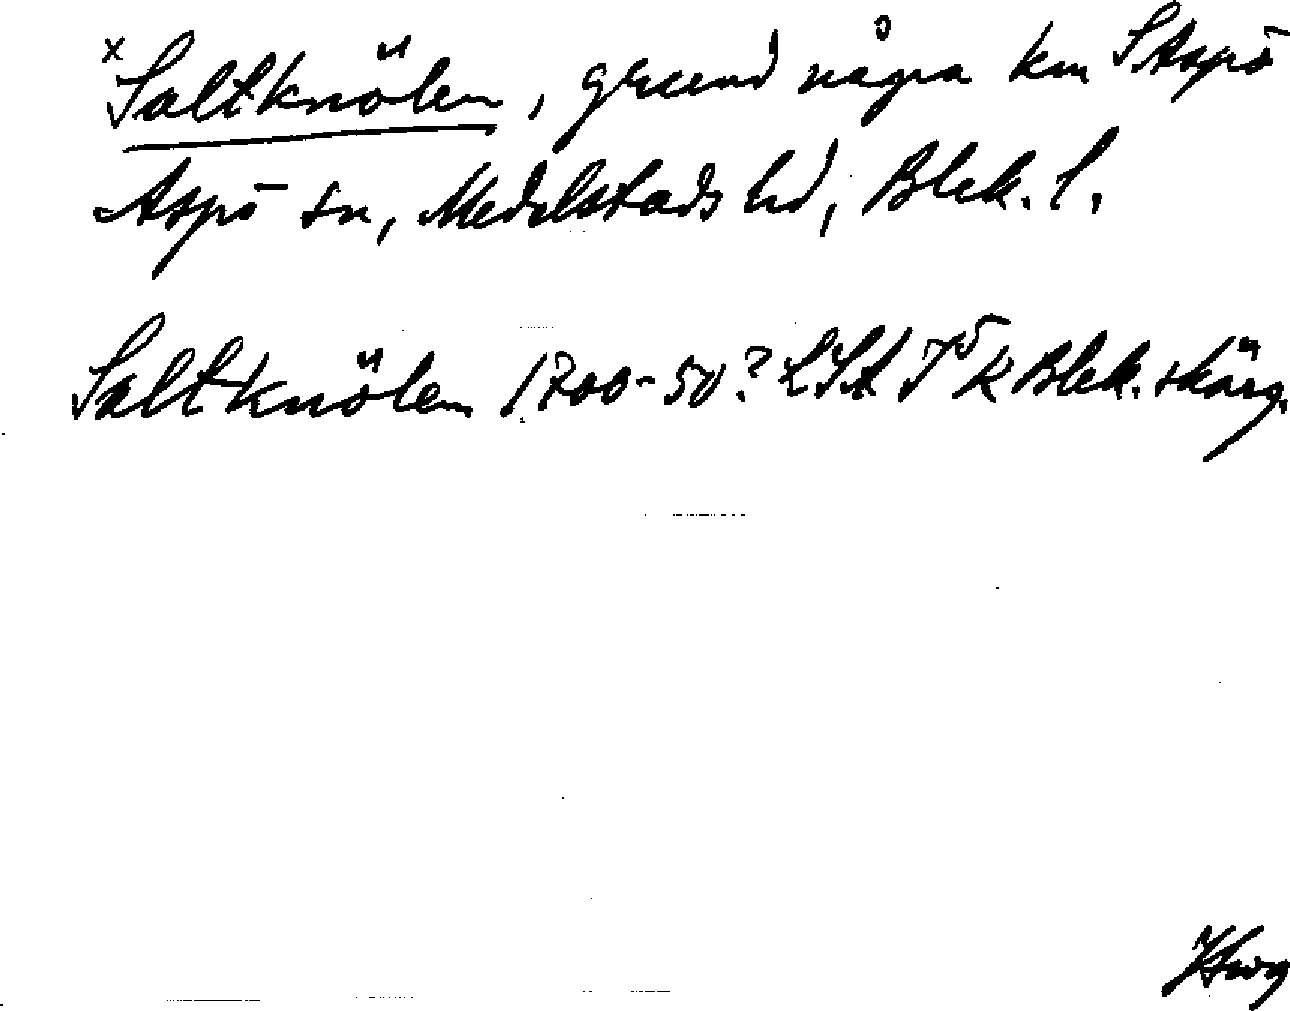 x Saltknölen, grund några km S Aspö
Aspö sn, Medelstads hd, Blek. l.
Saltknölen 1700-50? LSA J5 K Blek. skärg.